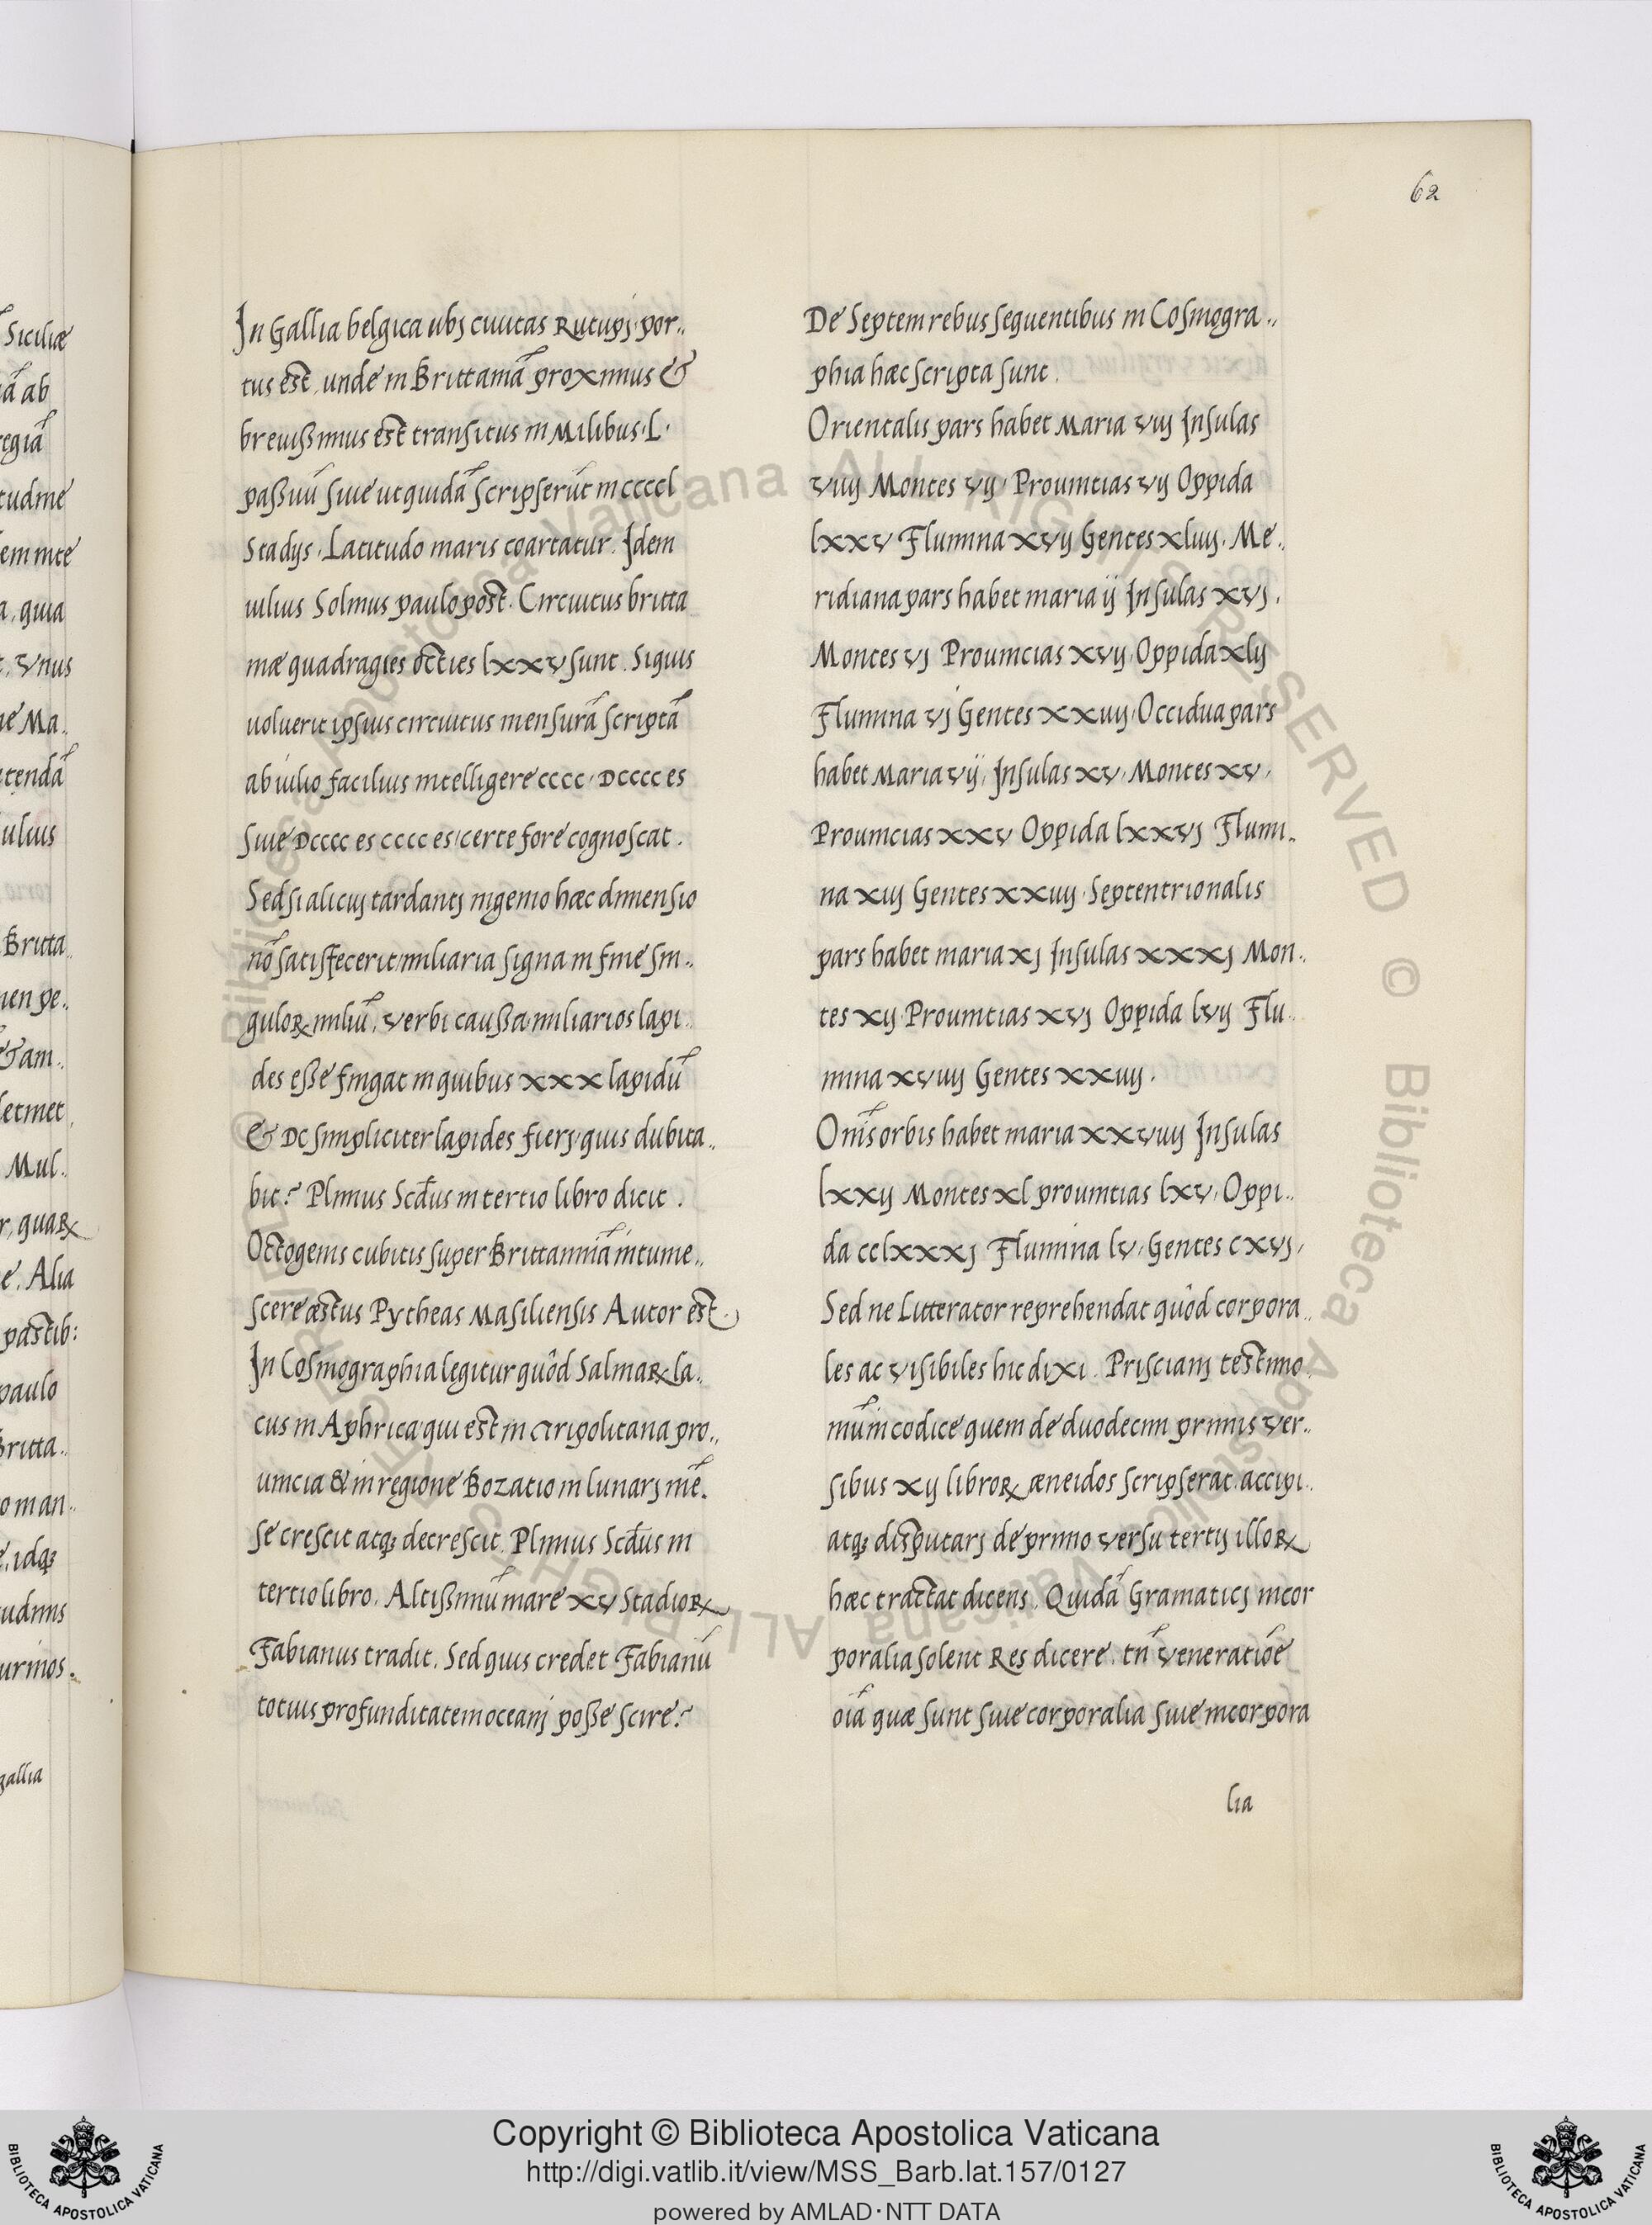 62
In Gallia belgica ubj ciuitas Rutupj por..
tus est, unde in Brittaniā proximus &
breuissimus est transitus in Milibus. L.
passuū siue ut quidā scripserūt mccccl
Stadijs. Latitudo maris coartatur. Idem
iulius Solinus paulo post. Circuitus britta
niæ quadragies octies lxxv sunt. Siquis
uoluerit ipsius circuitus mensurā scriptā
ab iulio facilius intelligere cccc. Dcccc es
siue Dcccc es cccc es certe fore cognoscat.
Sed si alicuj tardantj ingenio hæc dimensio
nō satisfecerit miliaria signa in fine sin..
guloꝝ miliū, verbi caussa miliarios lapi..
des esse fingat in quibus xxx lapidū
& DC simpliciter lapides fierj quis dubita..
bit? Plinius Scd̄us in tertio libro dicit.
Octogenis cubitis super Brittanniā intume..
scere æstus Pytheas Masiliensis Autor est.
In Cosmographia legitur quôd Salinaꝝ la..
cus in Aphrica qui est in Tripolitana pro..
uincia & in regione Bozatio in lunarj mē.
se crescit atqꝫ decrescit. Plinius Scd̄us in
tertio libro. Altissimū mare xv Stadioꝝ
Fabianus tradit. Sed quis credet Fabianū
totius profunditatem oceanj posse scire?
De Septem rebus sequentibus in Cosmogra..
phia hæc scripta sunt.
Orientalis pars habet Maria viij Insulas
viiij Montes vij Prouintias vij Oppida
lxxv Flumina xvij Gentes xliiij. Me..
ridiana pars habet maria ij Insulas xvj.
Montes vj Prouincias xvij Oppida xlij
Flumina vj Gentes xxiiij Occidua pars
habet Maria vij, Insulas xv, Montes xv,
Prouincias xxv Oppida lxxvj Flumi..
na xiij Gentes xxiiij Septentrionalis
pars habet maria xj Insulas xxxj Mon..
tes xij Prouintias xvj Oppida lvij Flu..
mina xviiij Gentes xxiiij.
Oīns orbis habet maria xxviiij Insulas
lxxij Montes xl prouintias lxv, Oppi..
da cclxxxj Flumina lv, Gentes cxvj,
Sed ne Litterator reprehendat quôd corpora..
les ac visibiles hic dixi. Priscianj testimo
niūm codice quem de duodecim primis ver..
sibus xij libroꝝ æneidos scripserat accipi..
atqꝫ disputarj de primo versu tertij illoꝝ
hæc tractat dicens. Quidā Gramaticj incor
poralia solent Res dicere. tn̄ veneratiōe
oīa quæ sunt siue corporalia siue incorpora
lia
Siciliæ
iā ab
regiā
tudine
em inte
a, quia
t, Vnus
ne Ma..
tendā
ulius
Britta
men pe..
& am..
letinet
Mul..
r, quaꝝ
e. Alia
pastib:
paulo
Britta..
o man..
e. idqꝫ
tudinis
urinos.
gallia
Copyright © Biblioteca Apostolica Vaticana
http://digi.vatlib.it/view/MSS_Barb.lat.157/0127
powered by AMLAD·NTT DATA
BIBLIOTECA APOSTOLICA VATICANA
BIBLIOTECA APOSTOLICA VATICANA